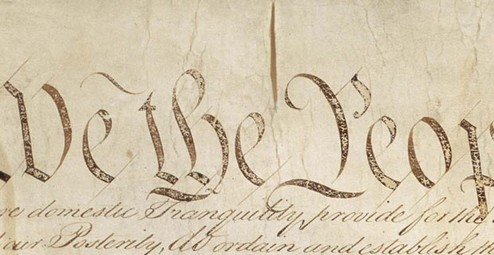 We the Peop
re domestic Tranquility, provide for the
our Posterity, do ordain and establish th